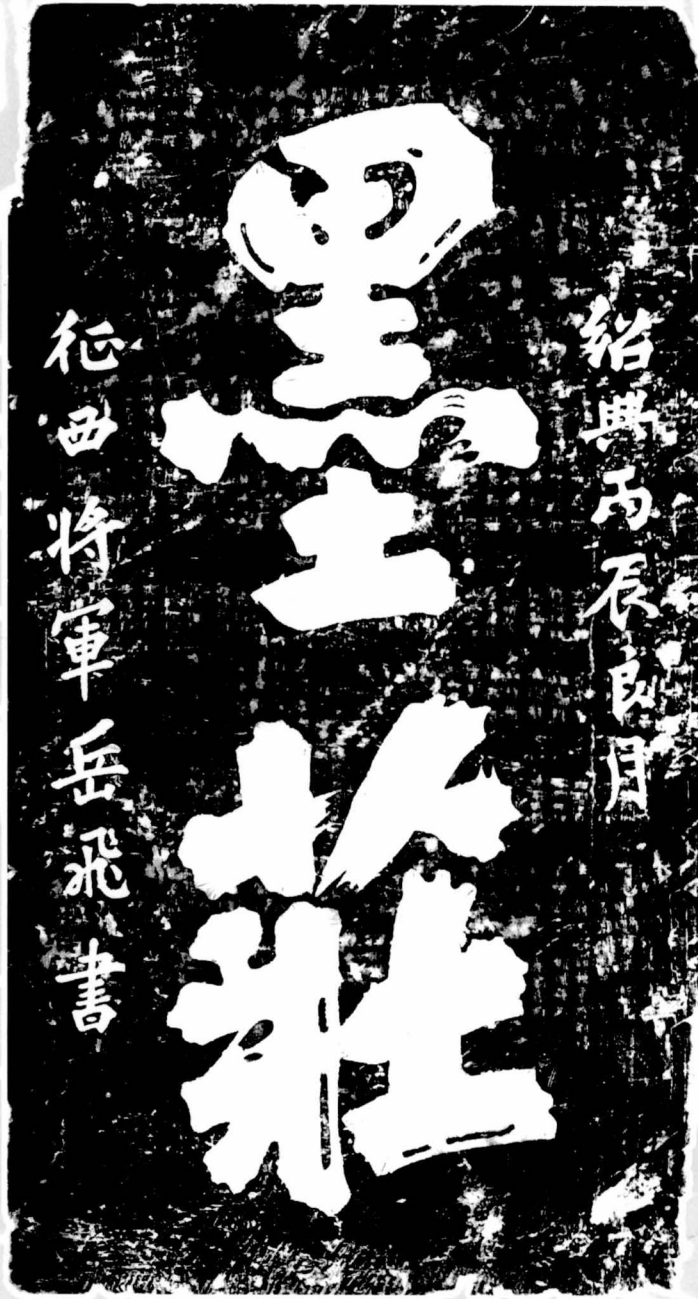 紹興丙辰良月
墨莊
征西将軍岳飛書